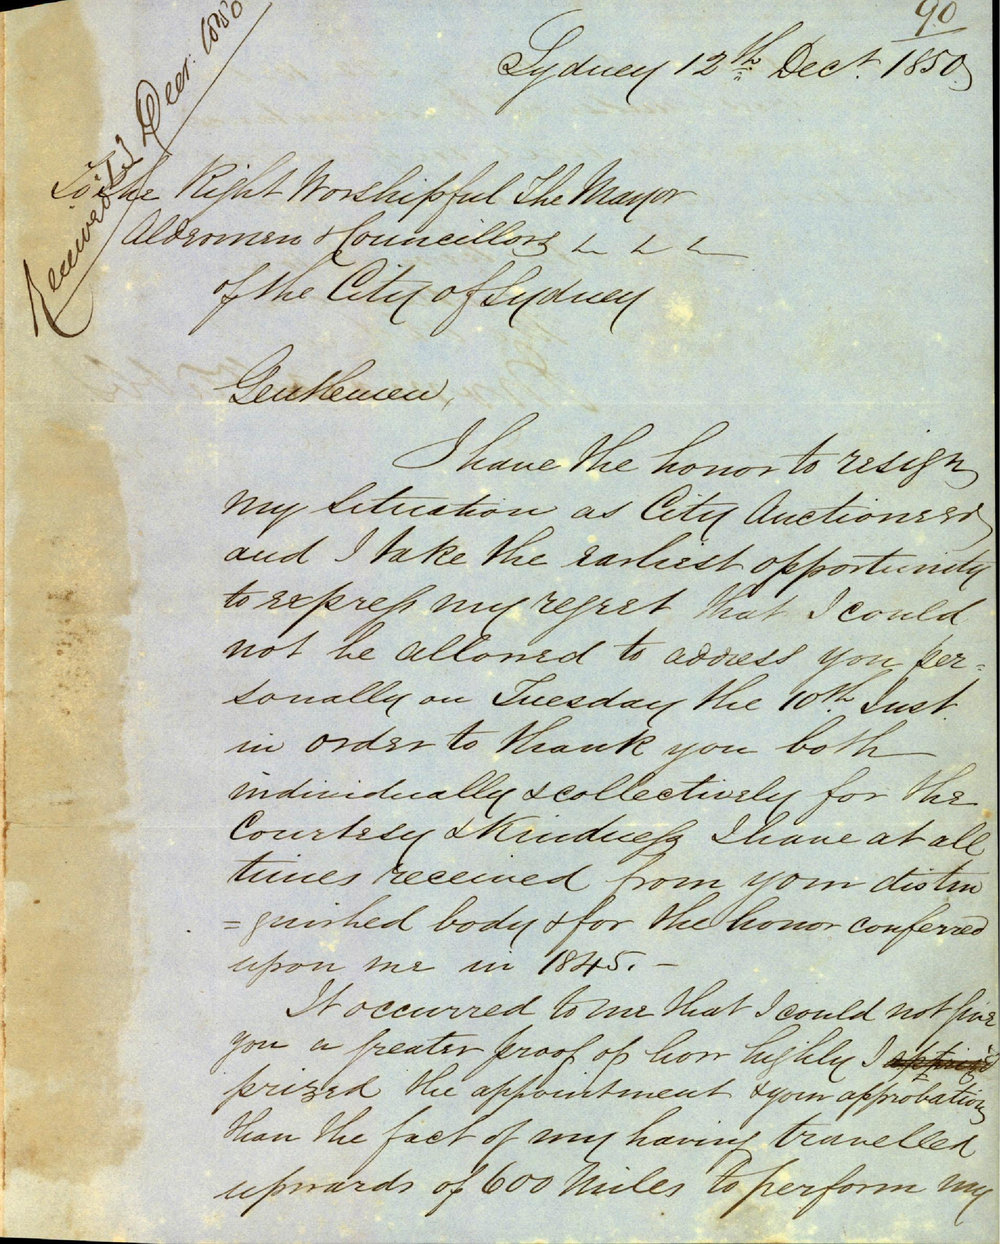 90
Sydney 12th Decr. 1850
Received 12 Decr. 1850
To the Right Worshipful The Mayor
Aldermen & Councillors
of the City of Sydney
Gentlemen,
I have the honor to resign
my situation as City Auctioneer
and I take the earliest opportunity
to express my regret that I could
not be allowed to address you per=
sonally on Tuesday the 10th Inst
in order to thank you both
individually & collectively for the
Courtesy & Kindness I have at all
times received from your distin
=guished body & for the honor conferred
upon me in 1845. —
It occurred to me that I could not give
you a greater proof of how highly I
prized the appointment & your approbation
than the fact of my having travelled
upwards of 600 Miles to perform my